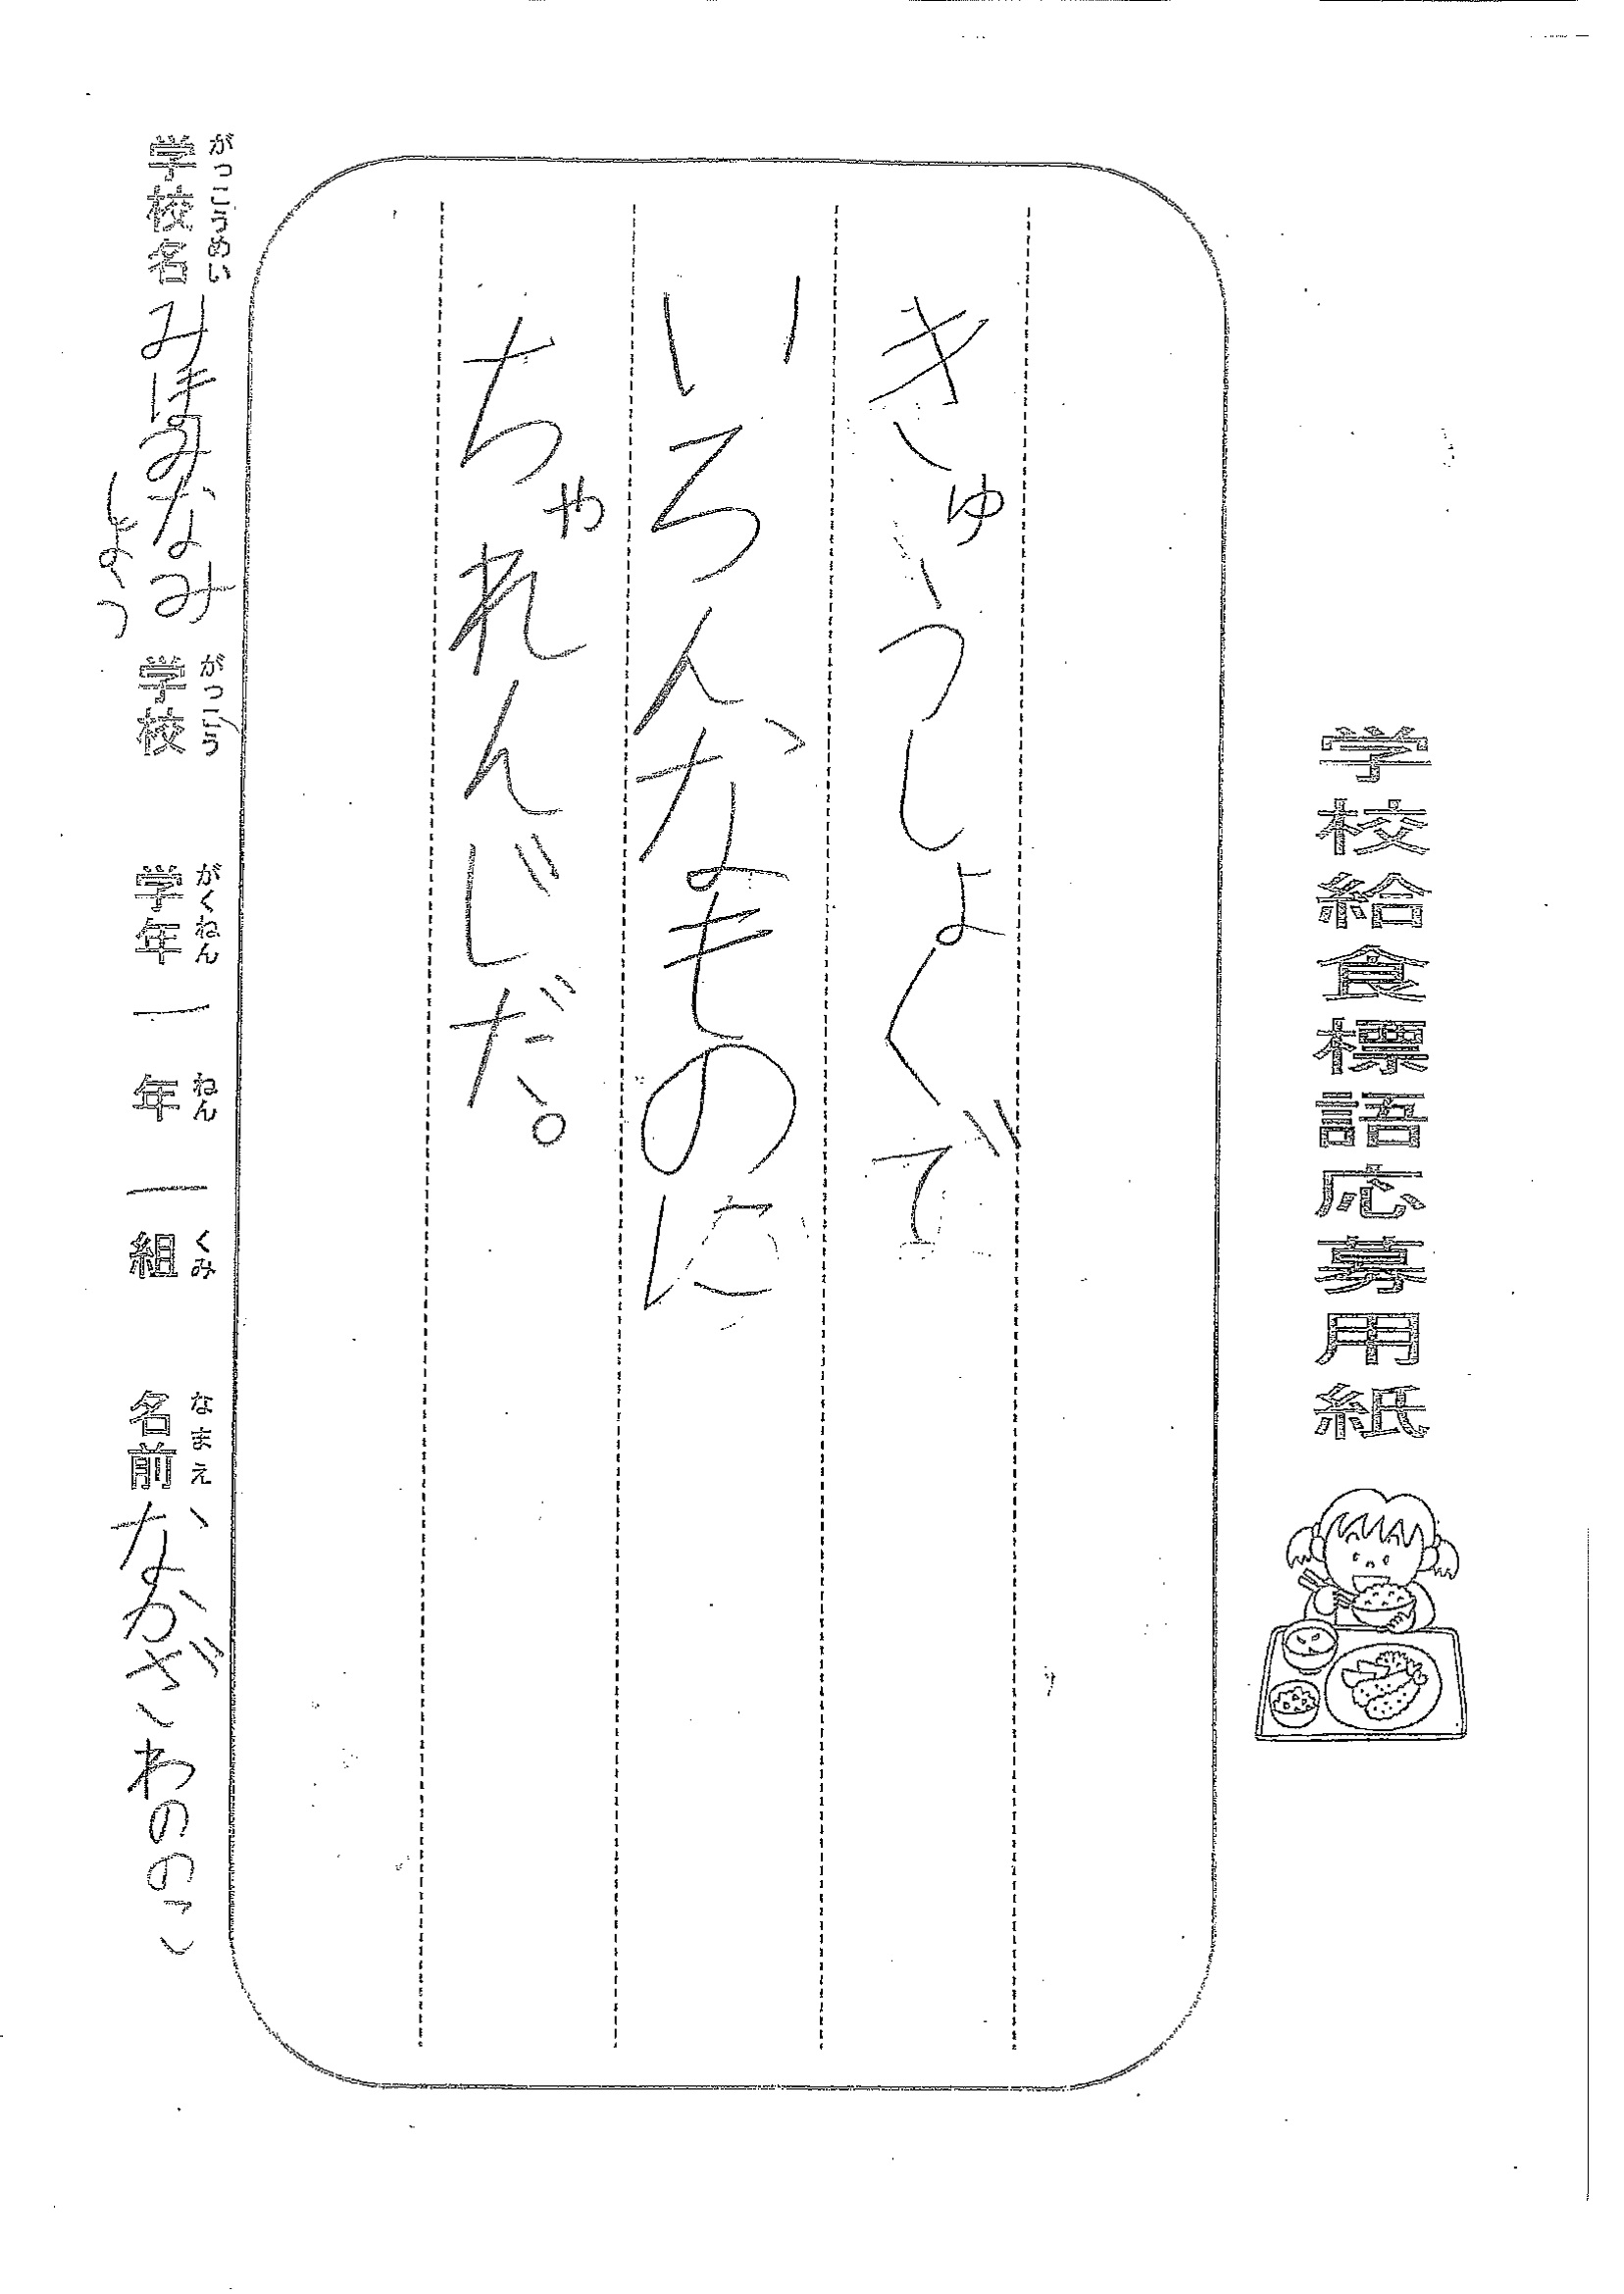 学校給食標語応募用紙
きゅうしょくで
いろんなものに
ちゃれんじだ。
がっこうめい
学校名 みほみなみ
しょう
がっこう
学校
がくねん
学年 一
ねん
年 一
くみ
組
なまえ
名前 なかざわののこ